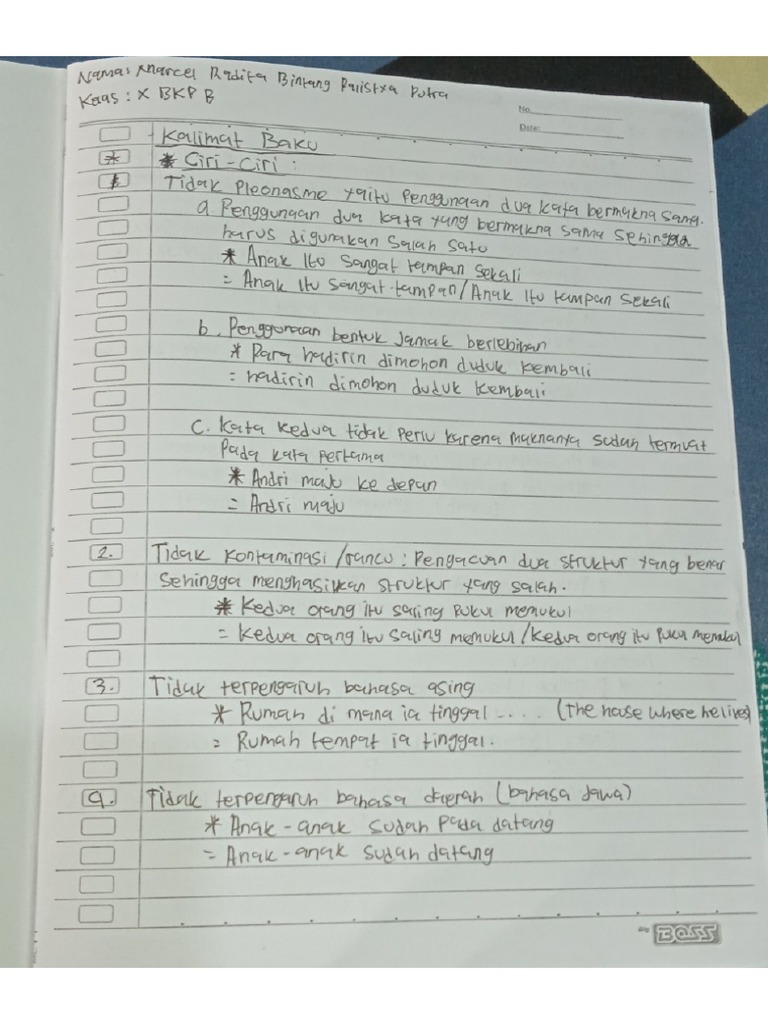 Nama: Marcel Radita Bintang Putra
Kelas : X BKP B
No.
Date:
Kalimat Baku
* * Ciri-Ciri :
1. Tidak Pleonasme yaitu Penggunaan dua kata bermakna sama.
a. Penggunaan dua kata yang bermakna sama sehingga
harus digunakan salah satu
* Anak itu sangat tampan sekali
= Anak itu sangat tampan/Anak itu tampan sekali
b. Penggunaan bentuk jamak berlebihan
* Para hadirin dimohon duduk kembali
= hadirin dimohon duduk kembali
c. Kata kedua tidak perlu karena maknanya sudah termuat
Pada kata pertama
* Andri maju ke depan
= Andri maju
2. Tidak Kontaminasi /rancu : Pengacuan dua struktur yang benar
Sehingga menghasilkan struktur yang salah.
* Kedua orang itu saling pukul memukul
= Kedua orang itu saling memukul/Kedua orang itu pukul memukul
3. Tidak terpengaruh bahasa asing
* Rumah di mana ia tinggal .... (the hause where he lives)
= Rumah tempat ia tinggal.
4. Tidak terpengaruh bahasa daerah (bahasa Jawa)
* Anak-anak sudah pada datang
= Anak-anak sudah datang
BOSS